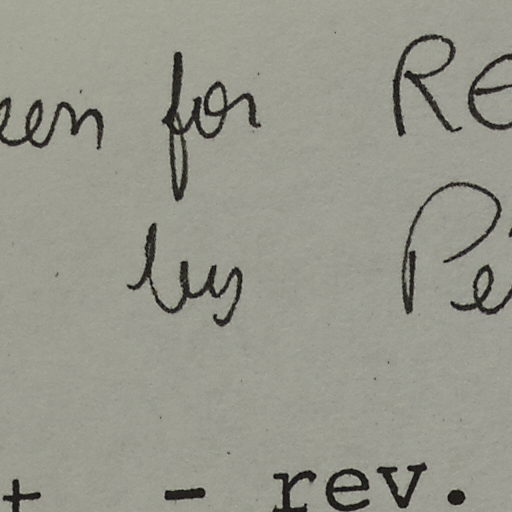 een for RE
by Pe
+ - rev.